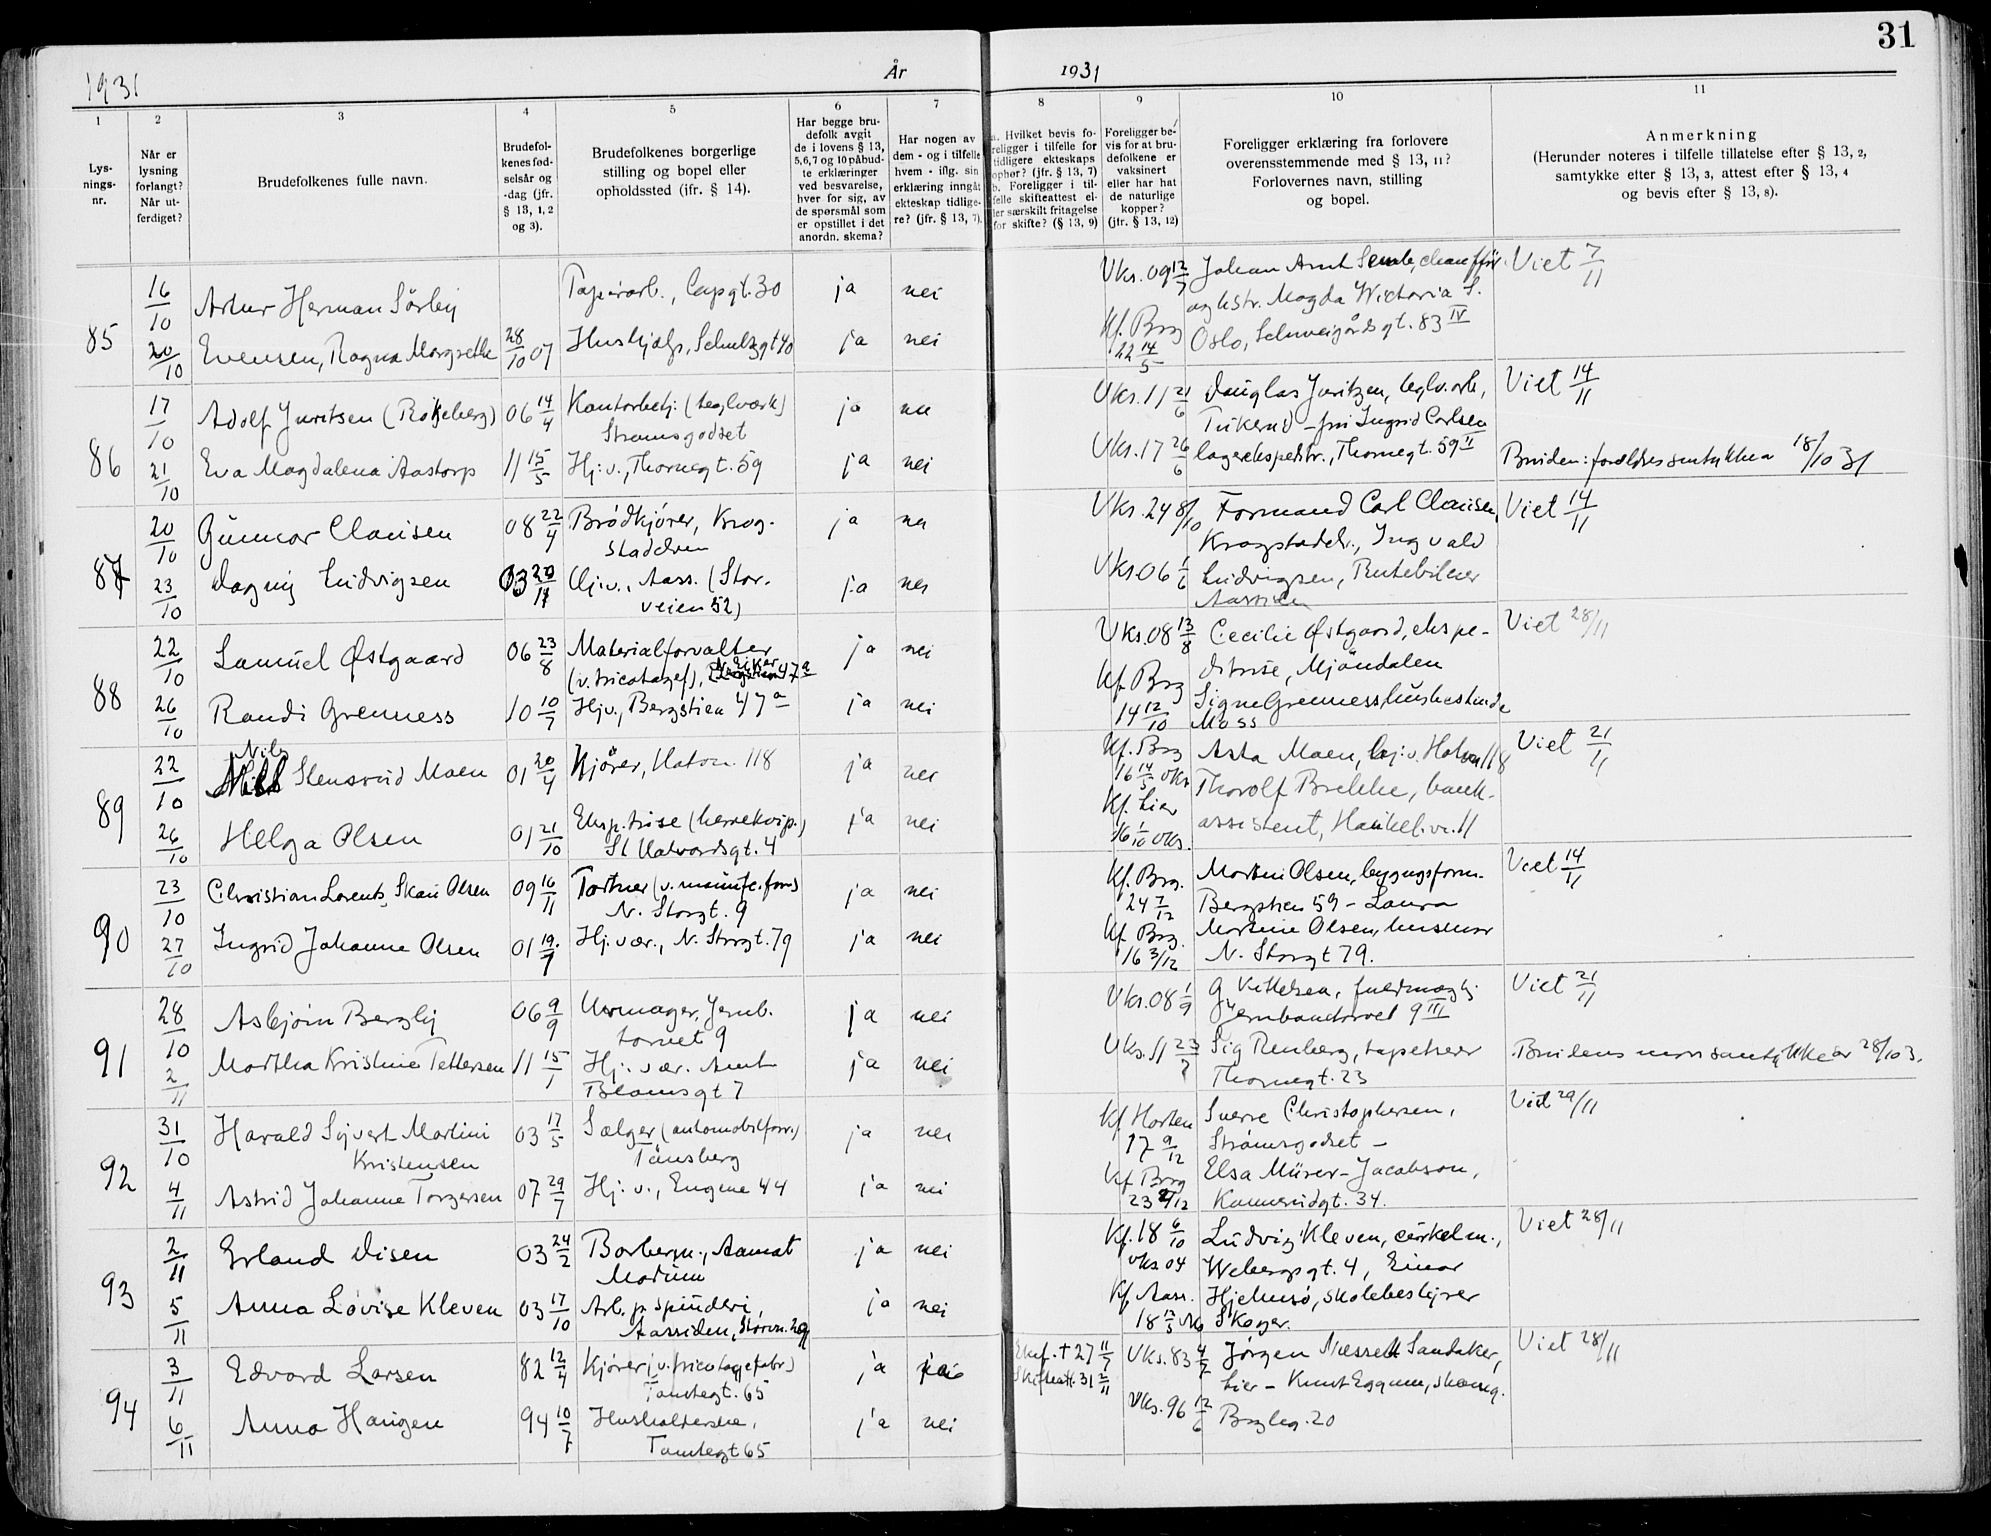 31
1931
År
1931
1
2
3
4
5
6
7
8
9
10
11
Lys-
nings-
nr.
Når er
lysning
forlangt?
Når ut-
ferdiget?
Brudefolkenes fulle navn.
Brudefol-
kenes fød-
selsår og
-dag (jfr.
§ 13, 1, 2
og 3).
Brudefolkenes borgerlige
stilling og bopel eller
opholdssted (jfr. § 14).
Har begge bru-
defolk avgit
de i lovens § 13,
5,6,7 og 10 påbud-
te erklæringer
ved besvarelse,
hver for sig, av
de spørsmål som
er opstillet i det
anordn. skema?
Har nogen av
dem - og i tilfelle
hvem - iflg. sin
erklæring inngåt
ekteskap tidlige-
re? (jfr. § 13, 7).
a. Hvilket bevis fo-
religger i tilfelle for
tidligere ekteskaps
ophør? (jfr. § 13, 7)
b. Foreligger i til-
felle skifteattest el-
ler særskilt fritagelse
for skifte? (§ 13, 9)
Foreligger be-
vis for at bru-
defolkene er
vaksinert
eller har hat
de naturlige
kopper?
(jfr. § 13, 12)
Foreligger erklæring fra forlovere
overensstemmende med § 13, 11?
Forlovernes navn, stilling
og bopel.
Anmerkning
(Herunder noteres i tilfelle tillatelse efter § 13, 2,
samtykke efter § 13, 3, attest efter § 13, 4
og bevis efter § 13, 8).
85
16/10 Artur Herman Sörby Capgt. 30 ja nei Vks. 09 12/7 Johan Arnt chauffør Viet 7/11
Magda Wictoria S.
20/10 Evensen, Ragna Margrethe 28/10 07 Hushjælp, Schultzgt 40 ja nei Kf. Brg 22 14/5 Oslo, Schweigårdsgt. 83 IV
86
17/10 Adolf Juritsen 06 14/4 Kontorbetj. (teglværk) ja Vks. 11 21/6 Douglas Juritzen, teglv.arb, Viet 14/11
Strømsgodset
Ingrid Carlsen
21/10 Eva Magdalena Aastorp 11 15/5 Hj.v., Thornegt. 59 ja nei Vks. 17 26/6 lagerekspedtr., Thornegt. 59 II Bruden: forældres samtykke 18/10 31
87
20/10 Gunnar Clausen 08 22/4 Brödkjörer, Krog- ja Vks. 24 8/10 Formand Carl Clausen, Viet 14/11
stadelven
Krogstadelv., Ingvald
23/10 Dagny Ludvigsen 03 Hj.v., Aass. (Stor- ja nei Vks. 06 1/6 Ludvigsen, Rutebileier
veien 52)
Aassiden
88
22/10 Samuel Østgaard 06 23/8 Materialforvalter ja nei Vks. 08 13/8 Cecilie Østgaard, ekspe- Viet 28/11
(v. tricotagef.), N. Eiker
ditrise, Mjöndalen
26/10 Randi Grenness 10 10/7 Hjv., Bergstien 47 a ja nei Kf. Brg 14 12/10 Signe Grenness, husbestinde
Moss
89
22/10 Nils Stensrud Moen 01 20/4 Kjörer, Hatvn. 118 ja nei Kf. Brg 16 14/5 vks Asta Moen, hj.v. Hatvn 118 Viet 21/11
Thorolf Brekke, bank-
26/10 Helga Olsen 01 21/10 Eksp.trise (herrekvip.) ja nei Kf. Lier 16 1/10 vks. assistent, Haukel.vn. 11
St Halvardsgt. 4
90
23/10 Christian Lorents Skau Olsen 09 16/11 ja nei Kf. Brg. 24 7/12 Martin Olsen, bygngsform. Viet 14/11
N. Storgt. 9
Bergstien 59 - Laura
27/10 Ingrid Johanne Olsen 01 Hj. vær., N. Storgt. 79 ja nei Kf. Brg. 16 3/12 Martine Olsen, husmor
N. Storgt 79.
91
28/10 Asbjörn Bergby 06 9/9 Urmager, Jernb. ja nei Vks. 08 1/9 G Kittelsen, Viet 21/11
torvet 9
Jernbanetorvet 9 III
2/11 Martha Kristine Pettersen 11 15/1 Hj. vær. Arnt ja nei Vks. 11 23/7 Sig Renberg, tapetserer Brudens mors samtykke av 28/10 3.
Blomsgt 7
Thornegt. 23
92
31/10 Harald Syvert Martini 03 17/5 Sælger (automobilforr.) ja nei Kf Horten 17 9/12 Sverre Christophersen, Viet 29/11
Kristensen Tönsberg
Strömsgodset -
4/11 Astrid Johanne Torgersen 07 29/7 Hj. v., Engene 44 ja nei Kf Brg Elsa Mürer-Jacobson,
Konnerudgt. 34.
93
2/11 Erland Disen 03 24/2 Barberm., Aamot ja nei Kf. 18 6/10 Ludvig Kleven, cirkelm., Viet 28/11
Modum
vks 04 Webergsgt. 4, Einar
5/11 Anna Lovise Kleven 03 17/10 Arb. p. spinderi, ja nei Kf. Aass. Hjelmsö, skolebestyrer
Aassiden, Skoger.
94
3/11 Edvard Larsen 82 12/4 Kjörer (v. tricotagefabr.) ja ja † 27 11/7 Vks. 83 4/7 Jørgen Sandaker, Viet 28/11
Tomtegt. 65 Skifteatt. 31 2/11
Lier - Knut Eggum,
6/11 Anna Haugen 94 10/7 Husholderske, ja nei Vks. 96 12/6 Brgleg. 20
Tomtegt 65